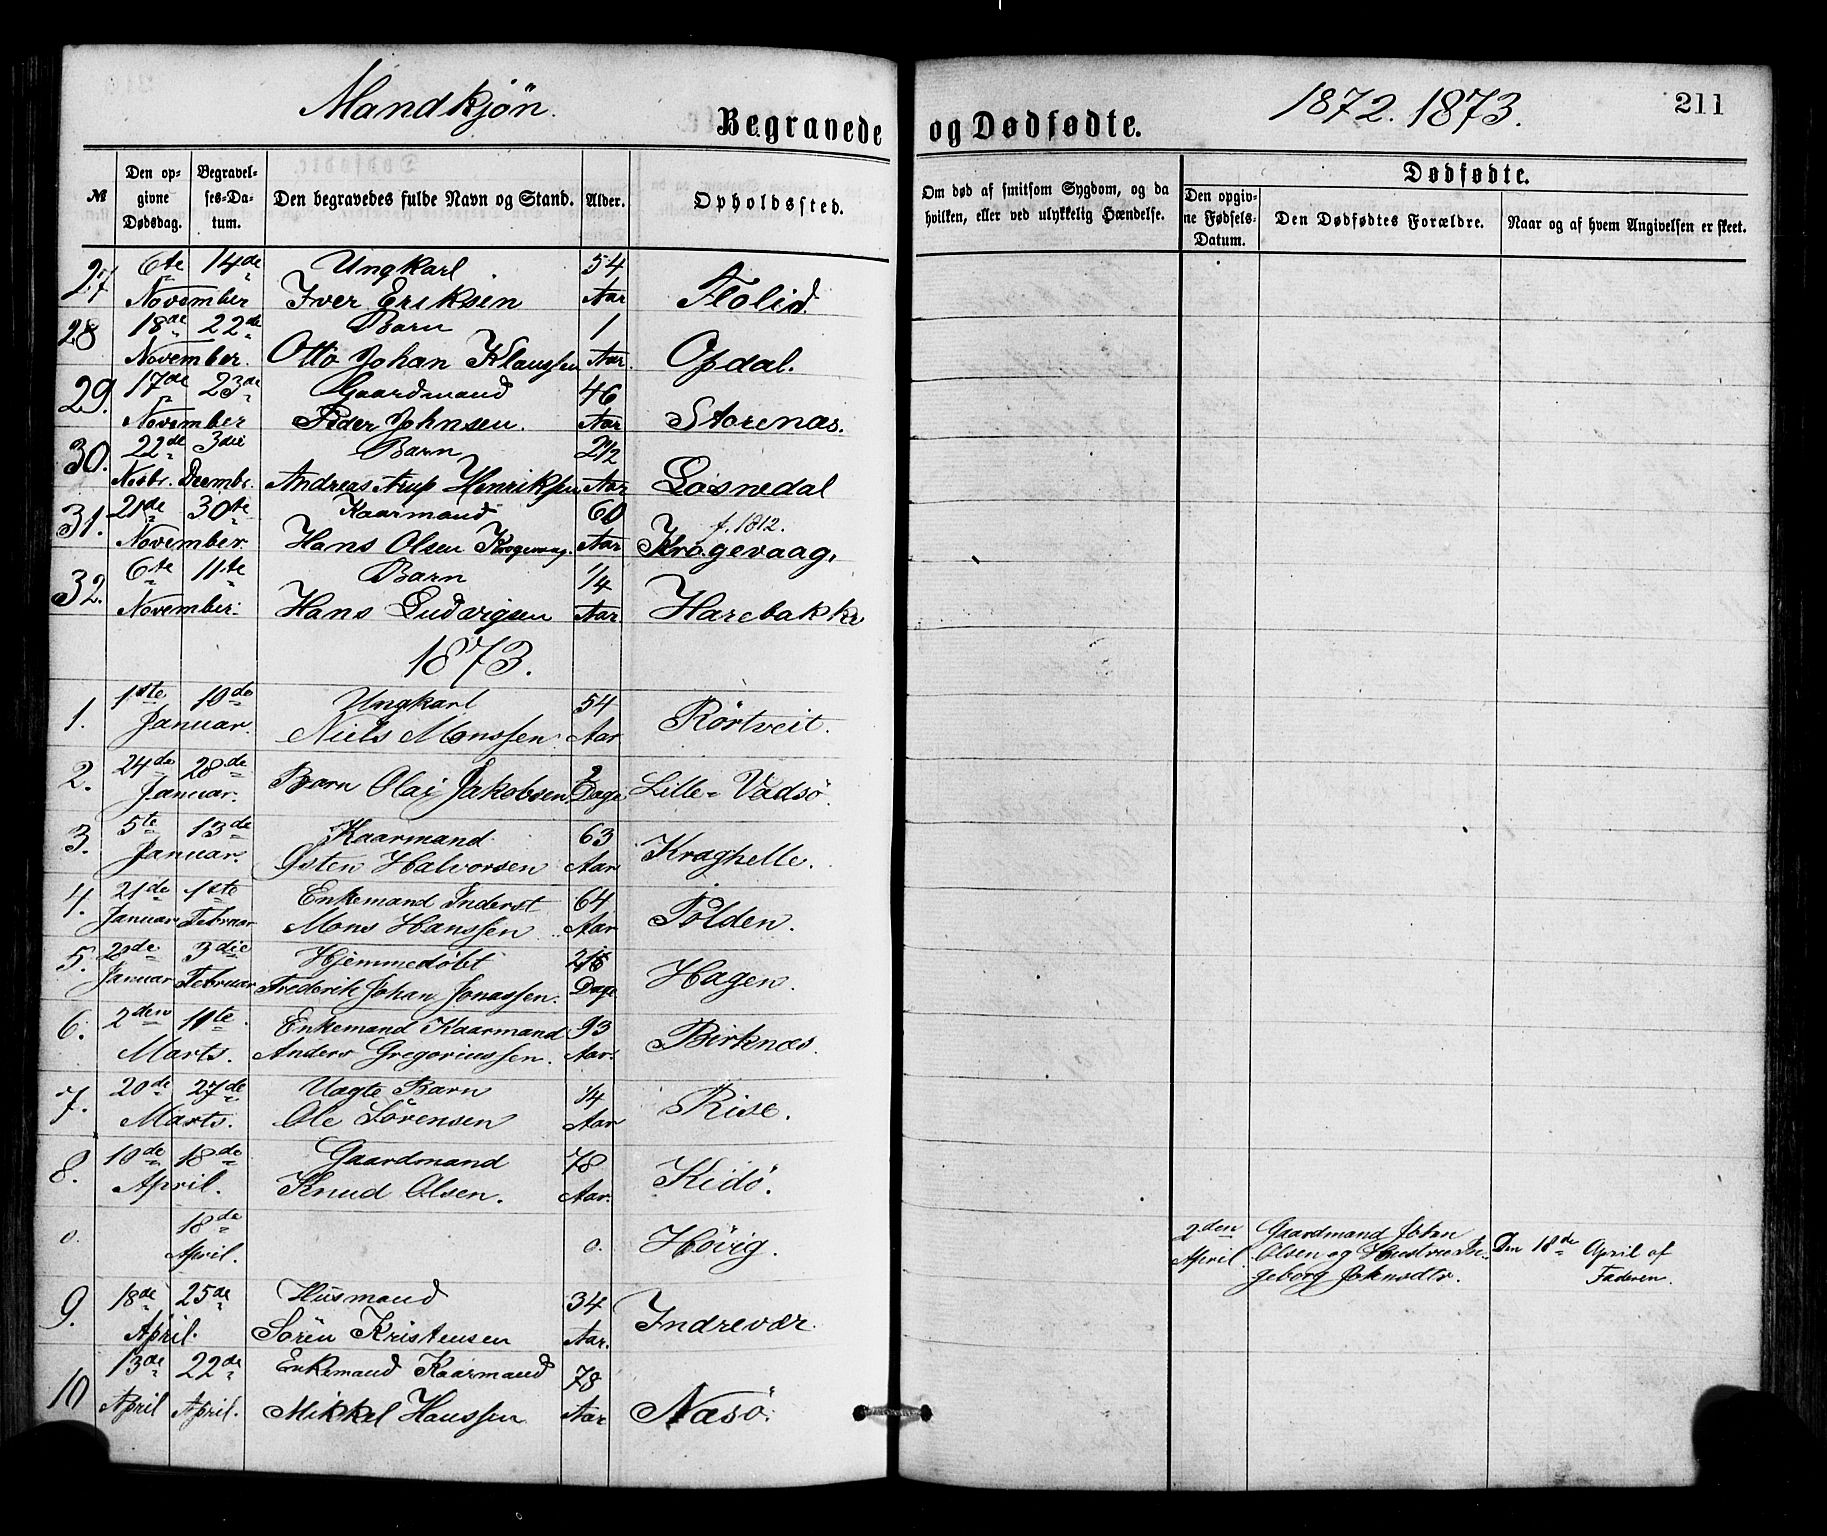 Mandkjøn.
Begravede
og Dødfødte.
1872. 1873.
211
№
Den opgivne Dødsdag.
Begravelses-Datum.
Den begravedes fulde Navn og Stand.
Alder.
Opholdssted.
Om død af smitsom Sygdom, og da hvilken, eller ved ulykkelig Hændelse.
Dødfødte.
Den opgivne Fødsels-Datum.
Den Dødfødtes Forældre.
Naar og af hvem Angivelsen er skeet.
27 6te 14de Ungkarl 54
November Iver Eriksen Aar Flolid.
28 18de 22de Barn 1
November. Otto Johan Klaussen Aar. Opdal.
29. 17de 23de Gaardmand 46
November Peder Johnsen. Aar Storenæs.
30. 22de 3die Barn 2 1/2
Novbr. Decembr. Andreas Arup Henriksen Aar Losnedal
31. 21de 30te Kaarmand 60 f. 1812.
November. Hans Olsen Krogevaag. Aar Krogevaag.
32. 6te 11te Barn 1/4
November. Hans Ludvigsen Aar Harebakke
1873.
1. 1ste 10de Ungkarl 54
Januar. Niels Monssen Aar Rörtveit.
2. 24de 28de Barn Olai Jakobsen 2 Lille-Vadsö.
Januar. Dage
3. 5te 13de Kaarmand 63
Januar. Østen Halvorsen Aar Kraghelle.
4. 21de 1ste Enkemand Inderst 64
Januar Februar Mons Hanssen Aar Polden.
5. 28de 3die Hjemmedöbt
Januar Februar Frederik Johan Jonassen. Dage Hagen.
6. 2den 11te Enkemand Kaarmand 93
Marts. Anders Gregoriussen. Aar. Birknæs.
7. 20de 27de Uægte Barn 1/4
Marts. Ole Sörensen Aar Rise.
8. 10de 18de Gaardmand 78
April. Knud Olsen. Aar. Kidö.
o. 18de April. o. Hövig. 2den April. Gaardmand Johan
Olsen og Hustru In-
geborg Johnsdtr. Den 18de April af
Faderen.
9. 18de 25de Husmand 34
April. Sören Kristensen Aar. Indrevær.
10 13de 22de Enkemand Kaarmand 78
April April. Mikkel Hanssen Aar Næsö.